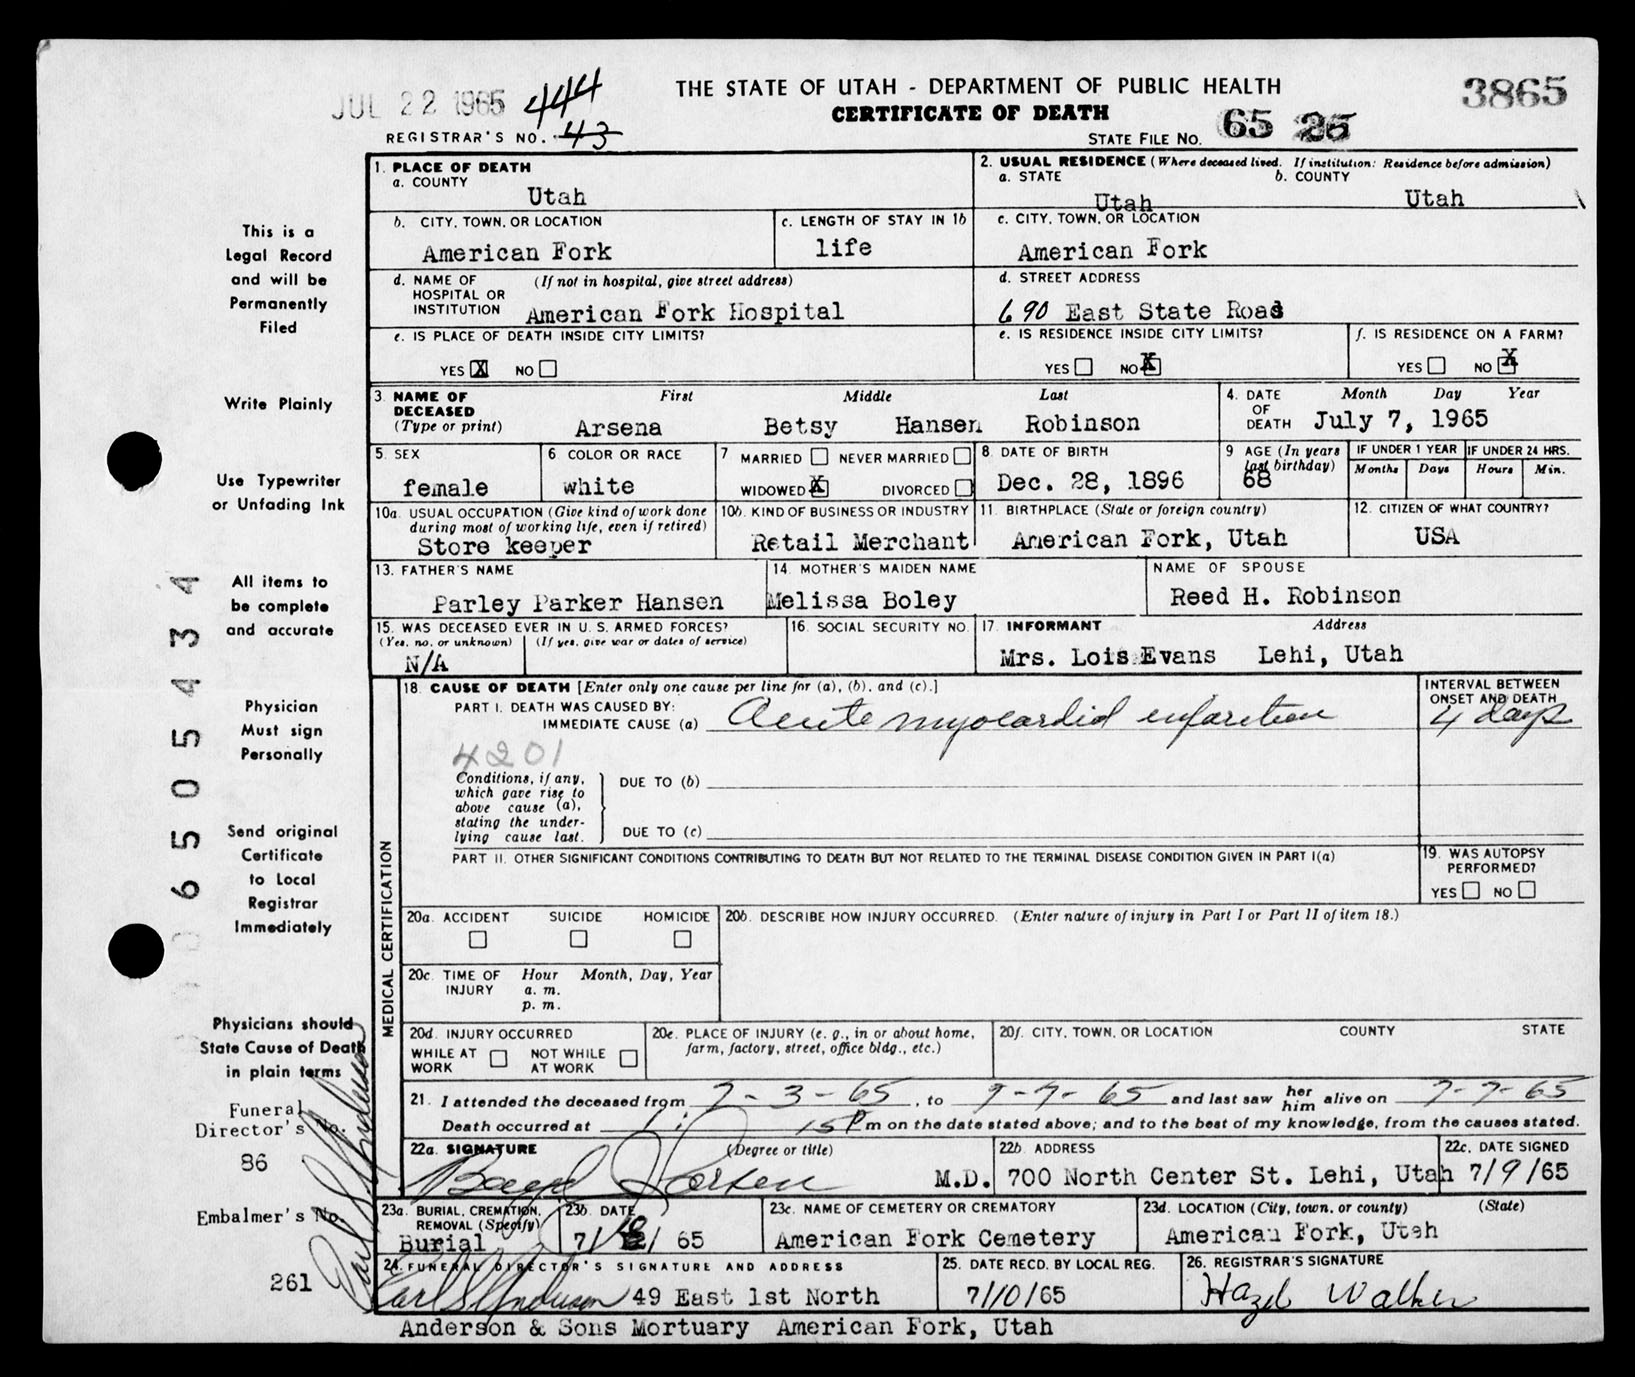 JUL 22 1965
444
THE STATE OF UTAH - DEPARTMENT OF PUBLIC HEALTH
3865
CERTIFICATE OF DEATH
REGISTRAR'S NO. 43
STATE FILE NO. 65 25
This is a
Legal Record
and will be
Permanently
Filed
Write Plainly
Use Typewriter
or Unfading Ink
All items to
be complete
and accurate
Physician
Must sign
Personally
Send original
Certificate
to Local
Registrar
Immediately
Physicians should
State Cause of Death
in plain terms
Funeral
Director's No.
86
Embalmer's No.
261
650545434
1. PLACE OF DEATH
a. COUNTY
Utah
2. USUAL RESIDENCE (Where deceased lived. If institution: Residence before admission)
a. STATE b. COUNTY
Utah Utah
b. CITY, TOWN, OR LOCATION
American Fork
c. LENGTH OF STAY IN 1b
life
c. CITY, TOWN, OR LOCATION
American Fork
d. NAME OF HOSPITAL OR INSTITUTION (If not in hospital, give street address)
American Fork Hospital
d. STREET ADDRESS
690 East State Road
e. IS PLACE OF DEATH INSIDE CITY LIMITS?
YES X NO
e. IS RESIDENCE INSIDE CITY LIMITS?
YES NO X
f. IS RESIDENCE ON A FARM?
YES NO X
3. NAME OF DECEASED (Type or print) First Middle Last
Arsena Betsy Hansen Robinson
4. DATE OF DEATH Month Day Year
July 7, 1965
5. SEX
female
6 COLOR OR RACE
white
7 MARRIED NEVER MARRIED
WIDOWED X DIVORCED
8 DATE OF BIRTH
Dec. 28, 1896
9 AGE (In years last birthday)
68
IF UNDER 1 YEAR IF UNDER 24 HRS.
Months Days Hours Min.
10a. USUAL OCCUPATION (Give kind of work done during most of working life, even if retired)
Store keeper
10b. KIND OF BUSINESS OR INDUSTRY
Retail Merchant
11. BIRTHPLACE (State or foreign country)
American Fork, Utah
12. CITIZEN OF WHAT COUNTRY?
USA
13. FATHER'S NAME
Parley Parker Hansen
14. MOTHER'S MAIDEN NAME
Melissa Boley
NAME OF SPOUSE
Reed H. Robinson
15. WAS DECEASED EVER IN U. S. ARMED FORCES?
(Yes, no, or unknown) (If yes, give war or dates of service)
N/A
16. SOCIAL SECURITY NO.
17. INFORMANT Address
Mrs. Lois Evans Lehi, Utah
MEDICAL CERTIFICATION
18. CAUSE OF DEATH [Enter only one cause per line for (a), (b), and (c).]
PART I. DEATH WAS CAUSED BY:
IMMEDIATE CAUSE (a) Acute myocardid infarction
INTERVAL BETWEEN ONSET AND DEATH
4 days
4201
Conditions, if any, which gave rise to above cause (a), stating the underlying cause last.
DUE TO (b)
DUE TO (c)
PART II. OTHER SIGNIFICANT CONDITIONS CONTRIBUTING TO DEATH BUT NOT RELATED TO THE TERMINAL DISEASE CONDITION GIVEN IN PART I(a)
19. WAS AUTOPSY PERFORMED?
YES NO
20a. ACCIDENT SUICIDE HOMICIDE
20b. DESCRIBE HOW INJURY OCCURRED. (Enter nature of injury in Part I or Part II of item 18.)
20c. TIME OF INJURY Hour Month, Day, Year
a. m.
p. m.
20d. INJURY OCCURRED
WHILE AT WORK NOT WHILE AT WORK
20e. PLACE OF INJURY (e. g., in or about home, farm, factory, street, office bldg., etc.)
20f. CITY, TOWN, OR LOCATION COUNTY STATE
21. I attended the deceased from 7-3-65, to 7-7-65 and last saw her him alive on 7-7-65
Death occurred at 1:15 P m on the date stated above; and to the best of my knowledge, from the causes stated.
22a. SIGNATURE (Degree or title)
Boyd J Larsen M.D.
22b. ADDRESS
700 North Center St. Lehi, Utah
22c. DATE SIGNED
7/9/65
23a. BURIAL, CREMATION, REMOVAL (Specify)
Burial
23b. DATE
7/10/65
23c. NAME OF CEMETERY OR CREMATORY
American Fork Cemetery
23d. LOCATION (City, town, or county) (State)
American Fork, Utah
24. FUNERAL DIRECTOR'S SIGNATURE AND ADDRESS
Earl S Anderson 49 East 1st North
25. DATE RECD. BY LOCAL REG.
7/10/65
26. REGISTRAR'S SIGNATURE
Hazel Walker
Anderson & Sons Mortuary American Fork, Utah